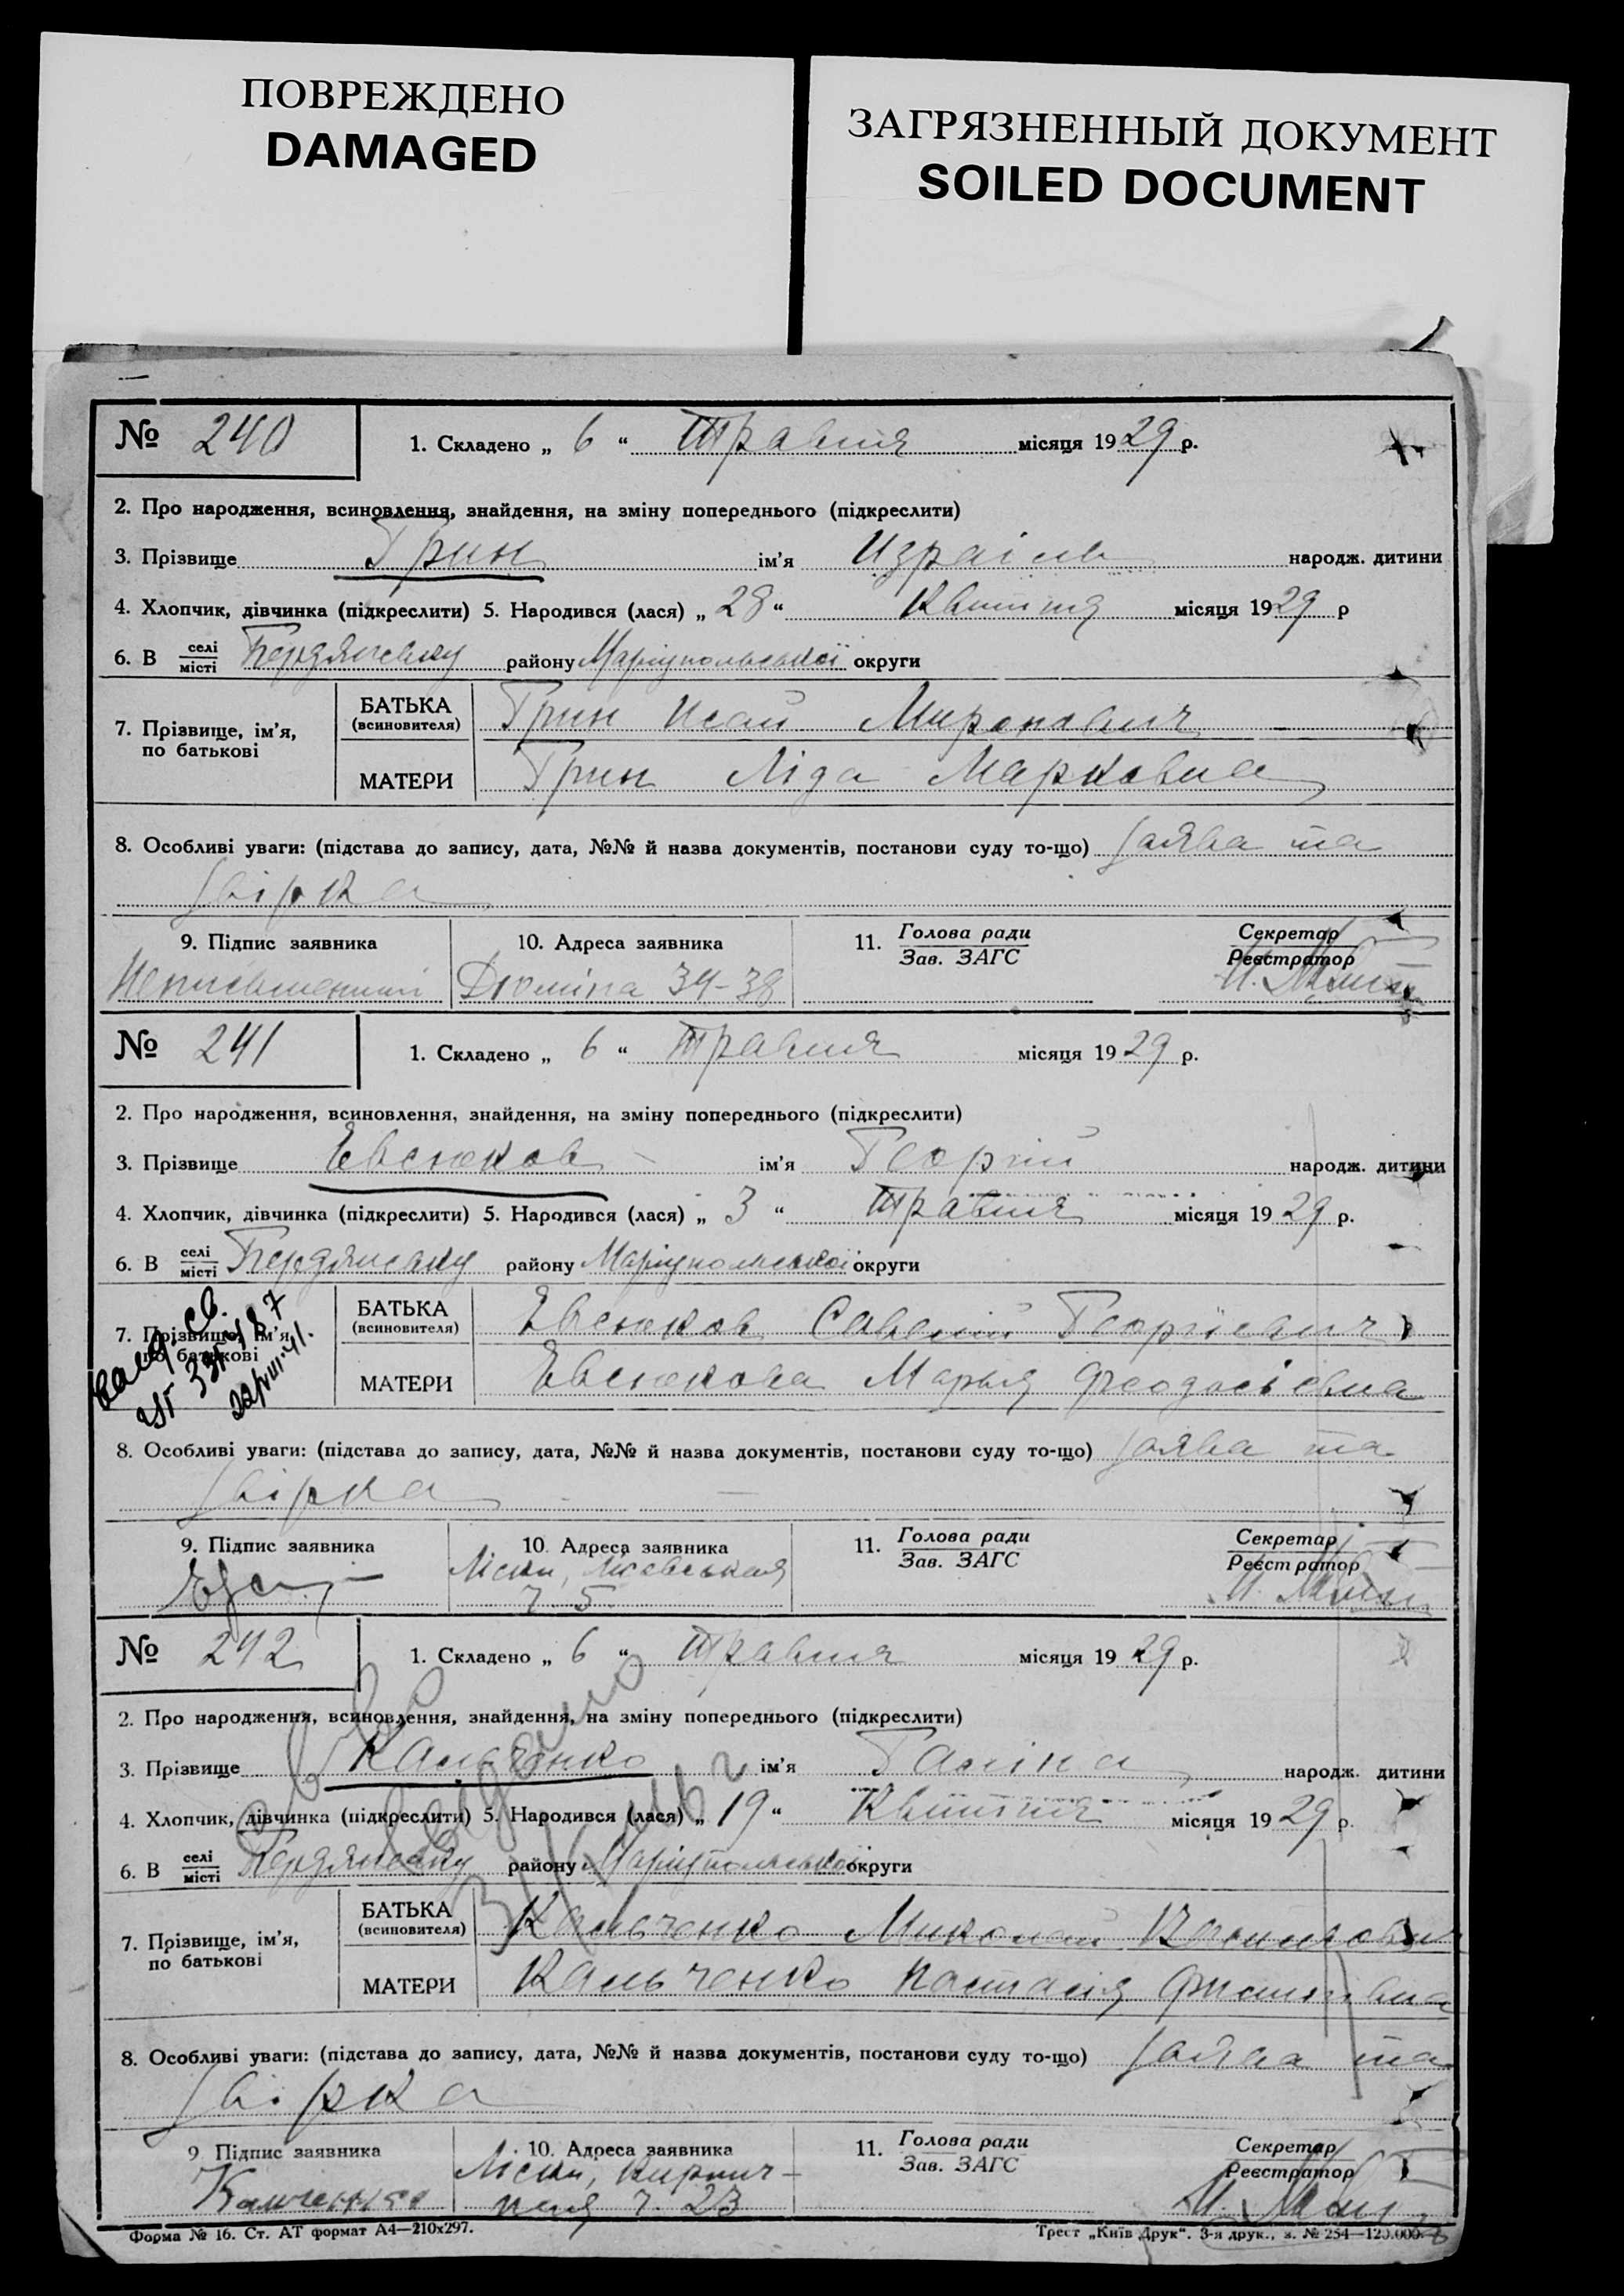 ПОВРЕЖДЕНО
DAMAGED
ЗАГРЯЗНЕННЫЙ ДОКУМЕНТ
SOILED DOCUMENT
№ 240 1. Складено „ 6 “ Травня місяця 1929 р.
2. Про народження, всиновлення, знайдення, на зміну попереднього (підкреслити)
3. Прізвище Грин ім'я Израіль народж. дитини
4. Хлопчик, дівчинка (підкреслити) 5. Народився (лася) „ 28 “ Квитня місяця 1929 р
6. В селі місті Бердянську району Маріупольської округи
7. Прізвище, ім'я, по батькові
БАТЬКА (всиновителя) Грин Исай Миронович
МАТЕРИ Грин Ліда Марковна
8. Особливі уваги: (підстава до запису, дата, №№ й назва документів, постанови суду то-що) заява та
звірка
9. Підпис заявника 10. Адреса заявника 11. Голова ради Зав. ЗАГС Секретар Реєстратор
Неписьменний Дюміна 34-38
№ 241 1. Складено „ 6 “ Травня місяця 1929 р.
2. Про народження, всиновлення, знайдення, на зміну попереднього (підкреслити)
3. Прізвище Евсюков ім'я Георгій народж. дитини
4. Хлопчик, дівчинка (підкреслити) 5. Народився (лася) „ 3 “ Травня місяця 1929 р.
6. В селі місті Бердянську району Маріупольської округи
7. Прізвище, ім'я, по батькові
БАТЬКА (всиновителя) Евсюков Савелий Георгієвич
МАТЕРИ Евсюкова Марья Феодосіевна
8. Особливі уваги: (підстава до запису, дата, №№ й назва документів, постанови суду то-що) заява та
звірка
9. Підпис заявника 10. Адреса заявника 11. Голова ради Зав. ЗАГС Секретар Реєстратор
Ліски,
ч. 5
№ 242 1. Складено „ 6 “ Травня місяця 1929 р.
2. Про народження, всиновлення, знайдення, на зміну попереднього (підкреслити)
3. Прізвище Кальченко ім'я Галіна народж. дитини
4. Хлопчик, дівчинка (підкреслити) 5. Народився (лася) „ 19 “ Квитня місяця 1929 р.
6. В селі місті Бердянську району Маріупольської округи
7. Прізвище, ім'я, по батькові
БАТЬКА (всиновителя) Кальченко Миколай
МАТЕРИ Кальченко Настасія
8. Особливі уваги: (підстава до запису, дата, №№ й назва документів, постанови суду то-що) заява та
звірка
9 Підпис заявника 10. Адреса заявника 11. Голова ради Зав. ЗАГС Секретар Реєстратор
Ліски, Кирпич-
ная ч. 23
Форма № 16. Ст. АТ формат А4—210х297. Трест „Київ Друк“. 3-я друк., з. № 254—120.000.